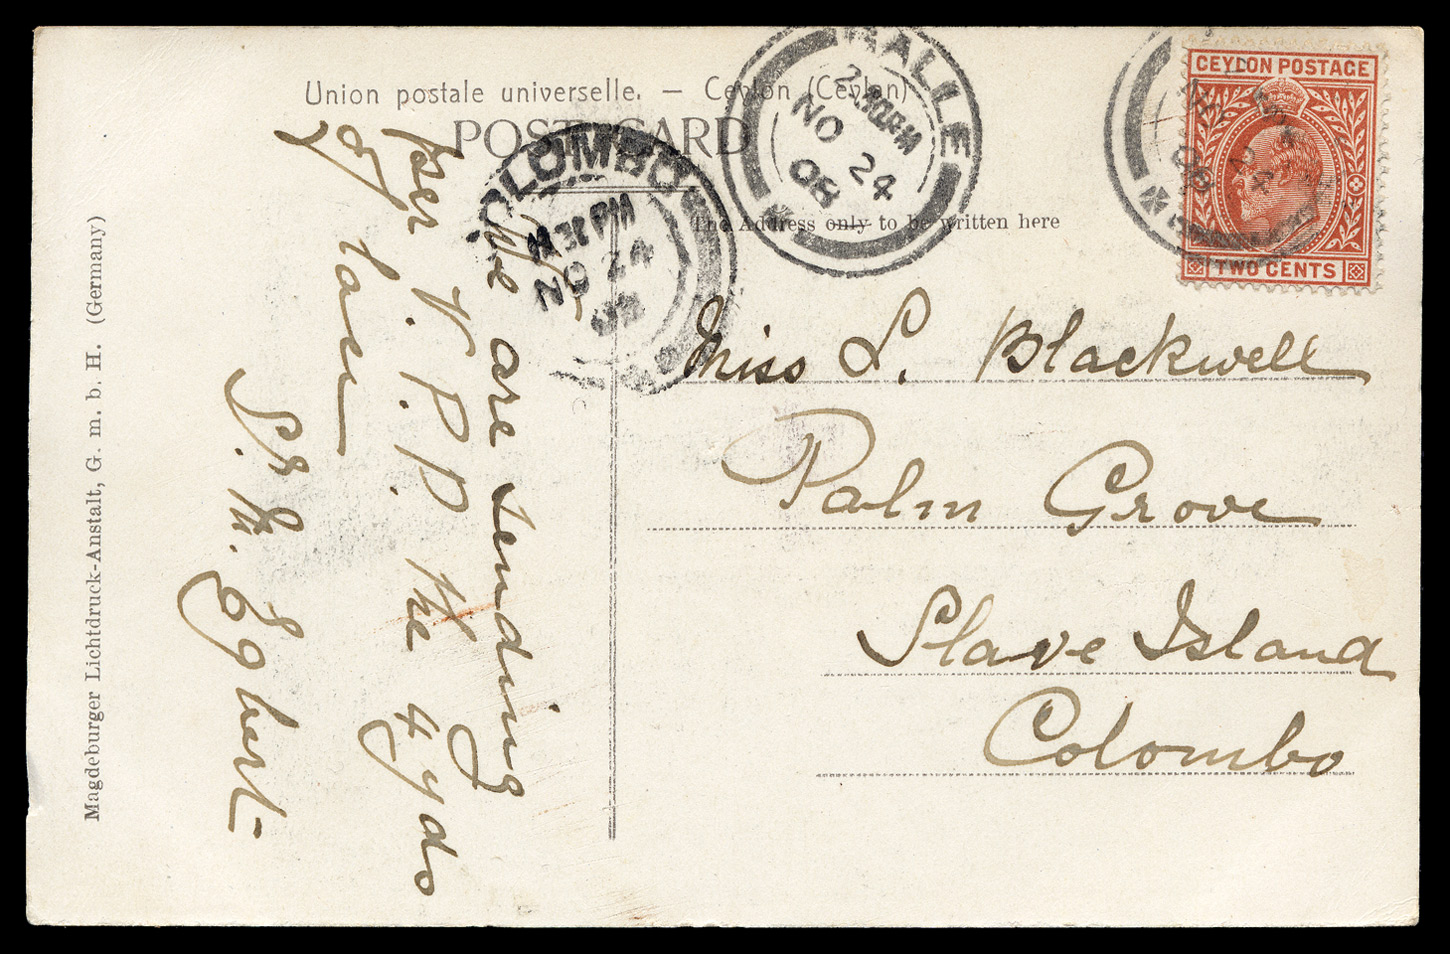 Union postale universelle. — Ceylon (Ceylan)
POST CARD
The Address only to be written here
CEYLON POSTAGE
TWO CENTS
GALLE
NO 24
08
COLOMBO
NO 24
We are sending
per V. P. P. the 4 yds
of lace
Egbert
Miss L. Blackwell
Palm Grove
Slave Island
Colombo
Magdeburger Lichtdruck-Anstalt, G. m. b. H. (Germany)